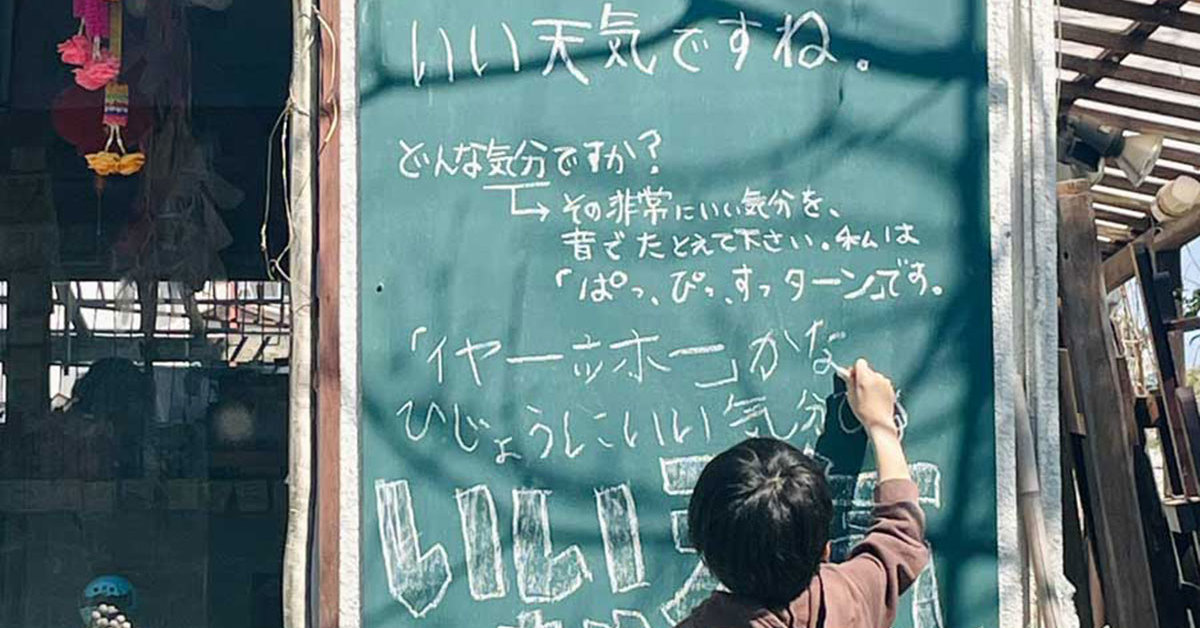 いい天気ですね。
どんな気分ですか?
その非常にいい気分を、
音でたとえて下さい。私は
「ぱっ、ぴっ、すっターン」です。
「イヤーッホー」かな
ひじょうにいい気分
いい